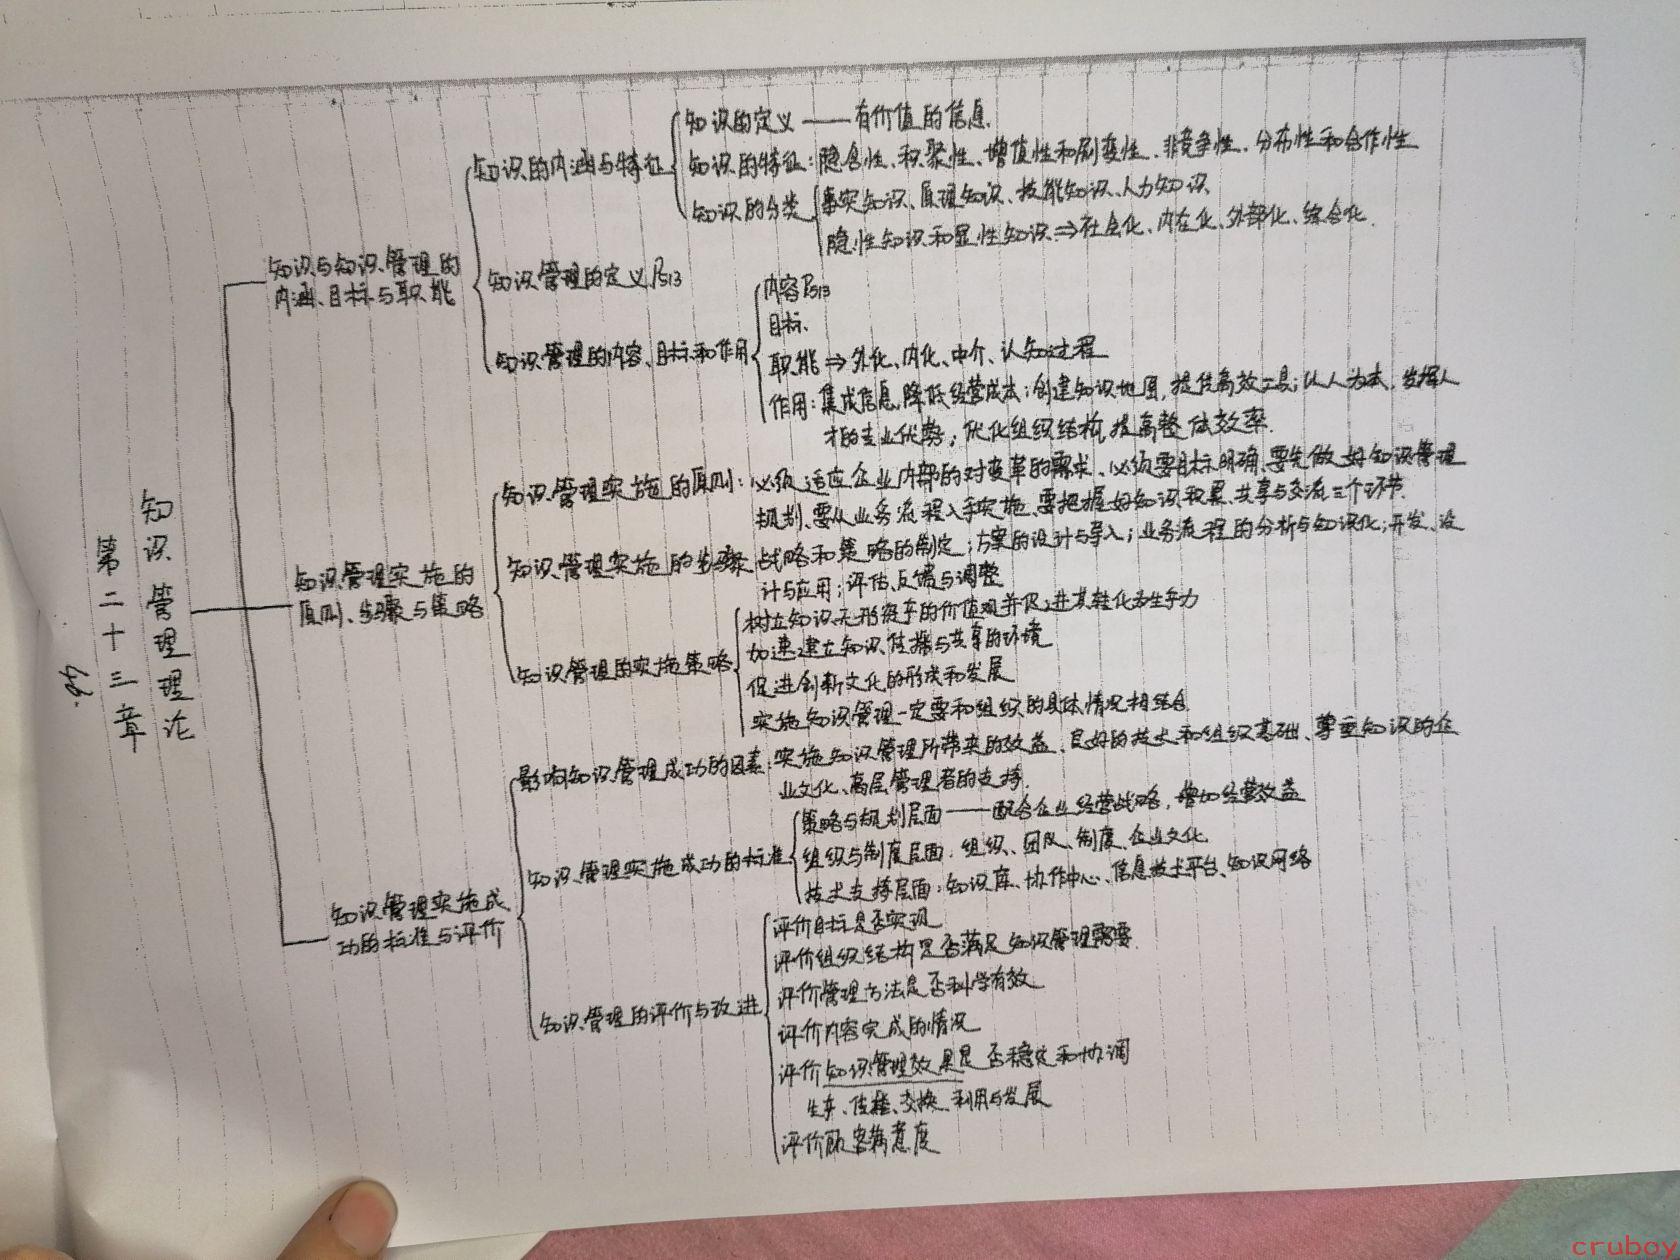 第二十三章
知识管理理论
知识与知识管理的
内涵、目标与职能
知识的内涵与特征
知识的定义——有价值的信息.
知识的特征:隐含性、积聚性、增值性和剧变性、非竞争性、分布性和合作性
知识的分类
事实知识、原理知识、技能知识、人力知识
隐性知识和显性知识⇒社会化、内在化、外部化、综合化.
知识管理的定义P513
知识管理的内容、目标和作用
内容P513
目标.
职能⇒外化、内化、中介、认知过程
作用:集成信息,降低经营成本;创建知识地图,提供高效工具;以人为本,发挥人
才的专业优势;优化组织结构,提高整体效率.
知识管理实施的
原则、步骤与策略
知识管理实施的原则:必须适应企业内部的对变革的需求、必须要目标明确、要先做好知识管理
规划、要从业务流程入手实施、要把握好知识积累、共享与交流三个环节.
知识管理实施的步骤
战略和策略的制定;方案的设计与导入;业务流程的分析与知识化;开发、设
计与应用;评估、反馈与调整
知识管理的实施策略
树立知识无形资产的价值观并促进其转化为生产力
加速建立知识传播与共享的环境
促进创新文化的形成和发展
实施知识管理一定要和组织的具体情况相结合.
知识管理实施成
功的标准与评价
影响知识管理成功的因素:实施知识管理所带来的效益、良好的技术和组织基础、尊重知识的企
业文化、高层管理者的支持.
知识管理实施成功的标准
策略与规划层面——配合企业经营战略,增加经营效益
组织与制度层面:组织、团队、制度、企业文化
技术支持层面:知识库、协作中心、信息技术平台、知识网络
知识管理的评价与改进
评价目标是否实现
评价组织结构是否满足知识管理需要.
评价管理方法是否科学有效
评价内容完成的情况
评价知识管理效果是否稳定和协调
生产、传播、交换、利用与发展
评价顾客满意度
cruboy